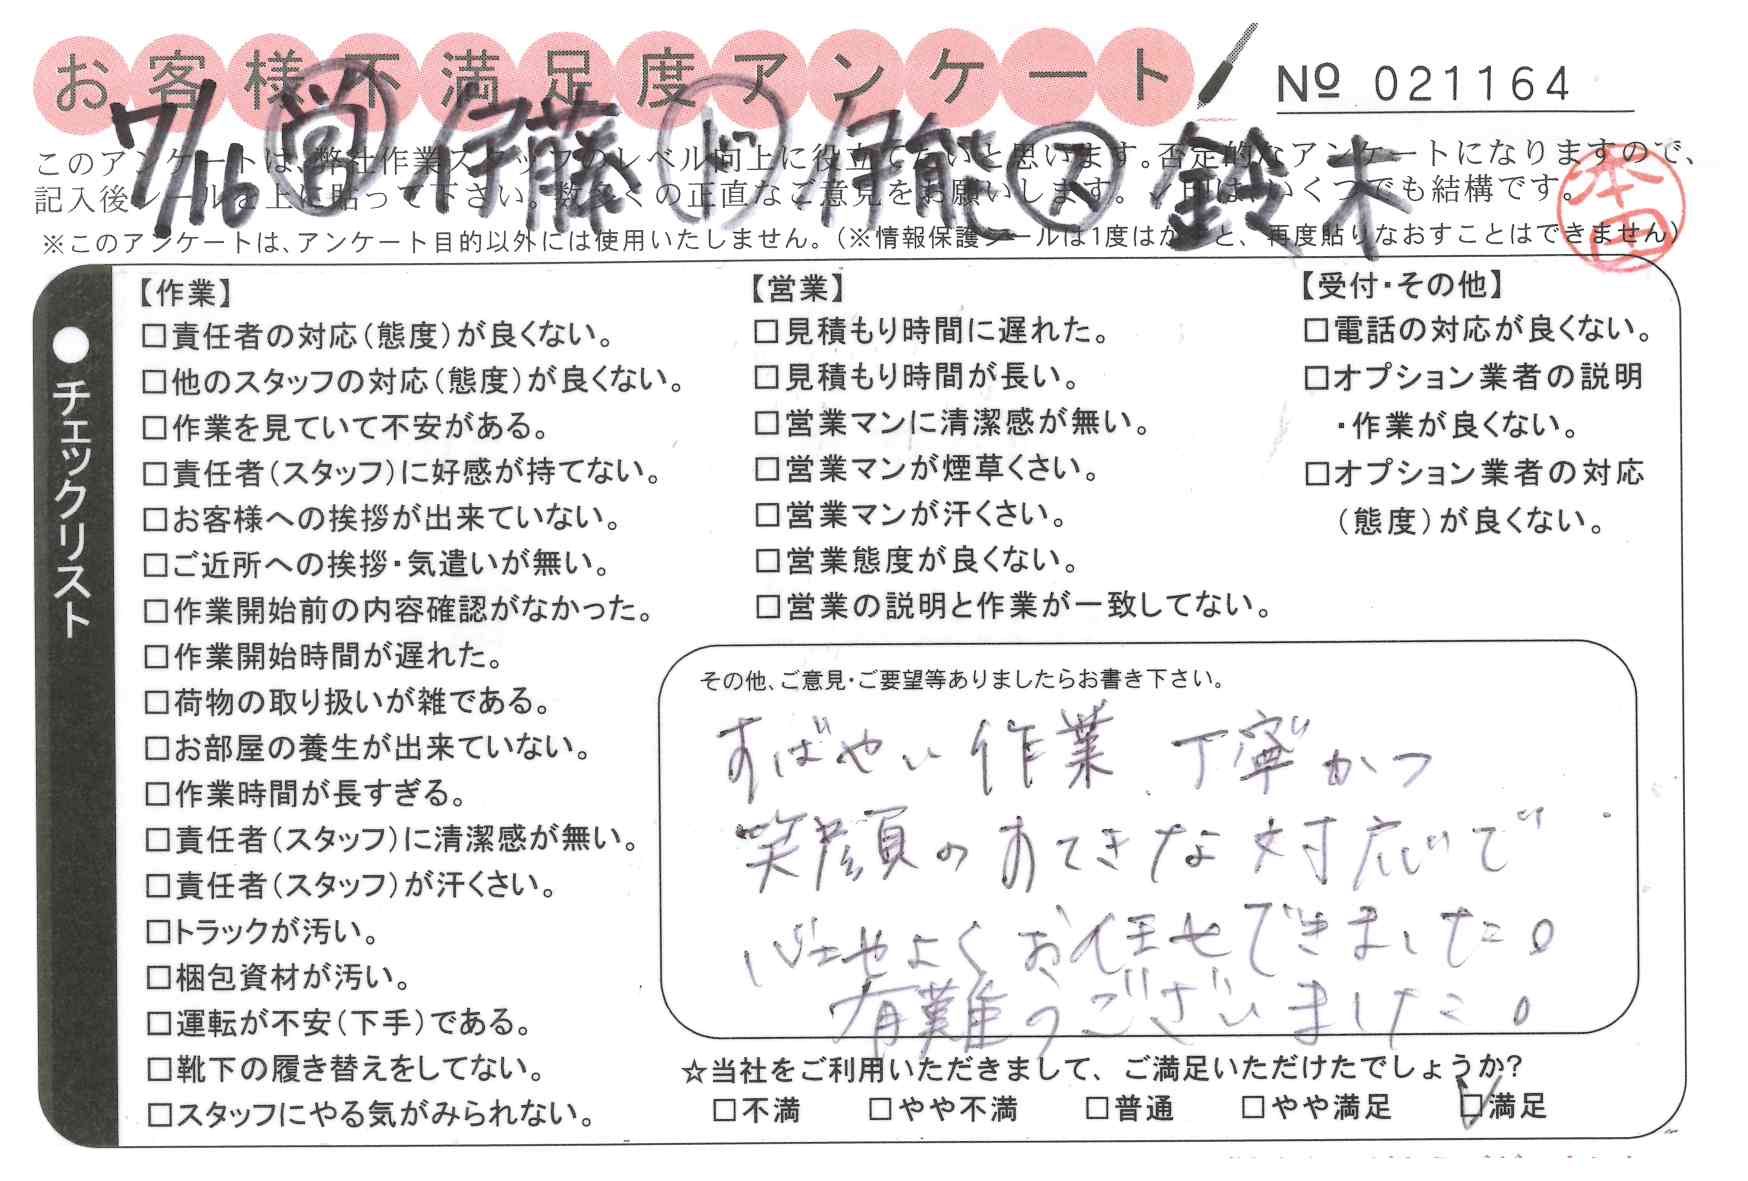 お客様不満足度アンケート
№ 021164
7/16 営 伊藤 ド 伊能 ス 鈴木
このアンケートは、弊社作業スタッフのレベル向上に役立てたいと思います。否定的なアンケートになりますので、
記入後シールを上に貼って下さい。数多くの正直なご意見をお願いします。✓印は、いくつでも結構です。
本田
※このアンケートは、アンケート目的以外には使用いたしません。(※情報保護シールは1度はがすと、再度貼りなおすことはできません)
●チェックリスト
【作業】
□責任者の対応(態度)が良くない。
□他のスタッフの対応(態度)が良くない。
□作業を見ていて不安がある。
□責任者(スタッフ)に好感が持てない。
□お客様への挨拶が出来ていない。
□ご近所への挨拶・気遣いが無い。
□作業開始前の内容確認がなかった。
□作業開始時間が遅れた。
□荷物の取り扱いが雑である。
□お部屋の養生が出来ていない。
□作業時間が長すぎる。
□責任者(スタッフ)に清潔感が無い。
□責任者(スタッフ)が汗くさい。
□トラックが汚い。
□梱包資材が汚い。
□運転が不安(下手)である。
□靴下の履き替えをしてない。
□スタッフにやる気がみられない。
【営業】
□見積もり時間に遅れた。
□見積もり時間が長い。
□営業マンに清潔感が無い。
□営業マンが煙草くさい。
□営業マンが汗くさい。
□営業態度が良くない。
□営業の説明と作業が一致してない。
【受付・その他】
□電話の対応が良くない。
□オプション業者の説明
・作業が良くない。
□オプション業者の対応
(態度)が良くない。
その他、ご意見・ご要望等ありましたらお書き下さい。
すばやい作業、丁寧かつ
笑顔のすてきな対応で
心地よくお任せできました。
有難うございました。
☆当社をご利用いただきまして、ご満足いただけたでしょうか?
□不満 □やや不満 □普通 □やや満足 ☑満足